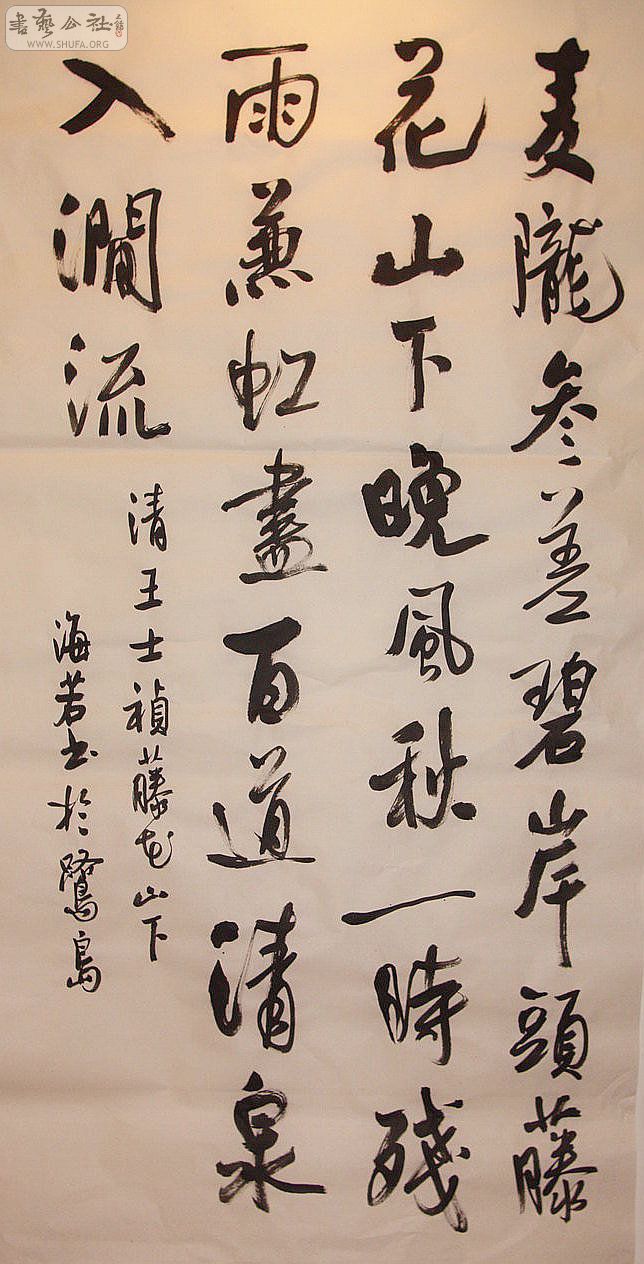 麦隴参差碧岸頭藤
花山下晚風秋一時殘
雨兼虹盡百道清泉
入澗流
清王士禎藤花山下
海若书於鷺島
書藝公社
WWW.SHUFA.ORG